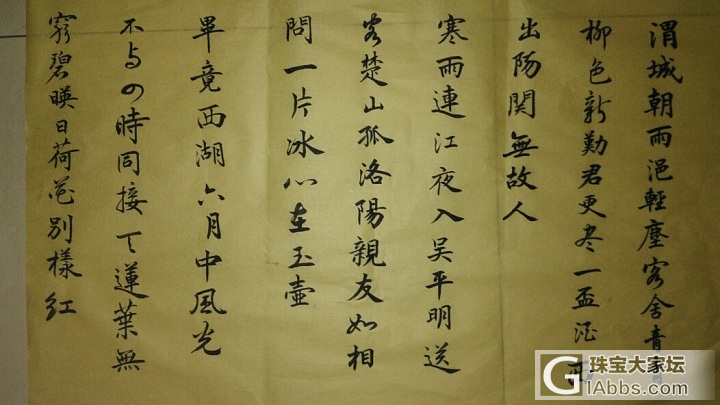 渭城朝雨浥輕塵客舍青青
柳色新勤君更尽一盃酒西
出陽関無故人
寒雨連江夜入吴平明送
客楚山孤洛陽親友如相
問一片冰心在玉壺
畢竟西湖六月中風光
不与四時同接天蓮葉無
窮碧暎日荷花別樣紅
珠宝大家坛
GIAbbs.com